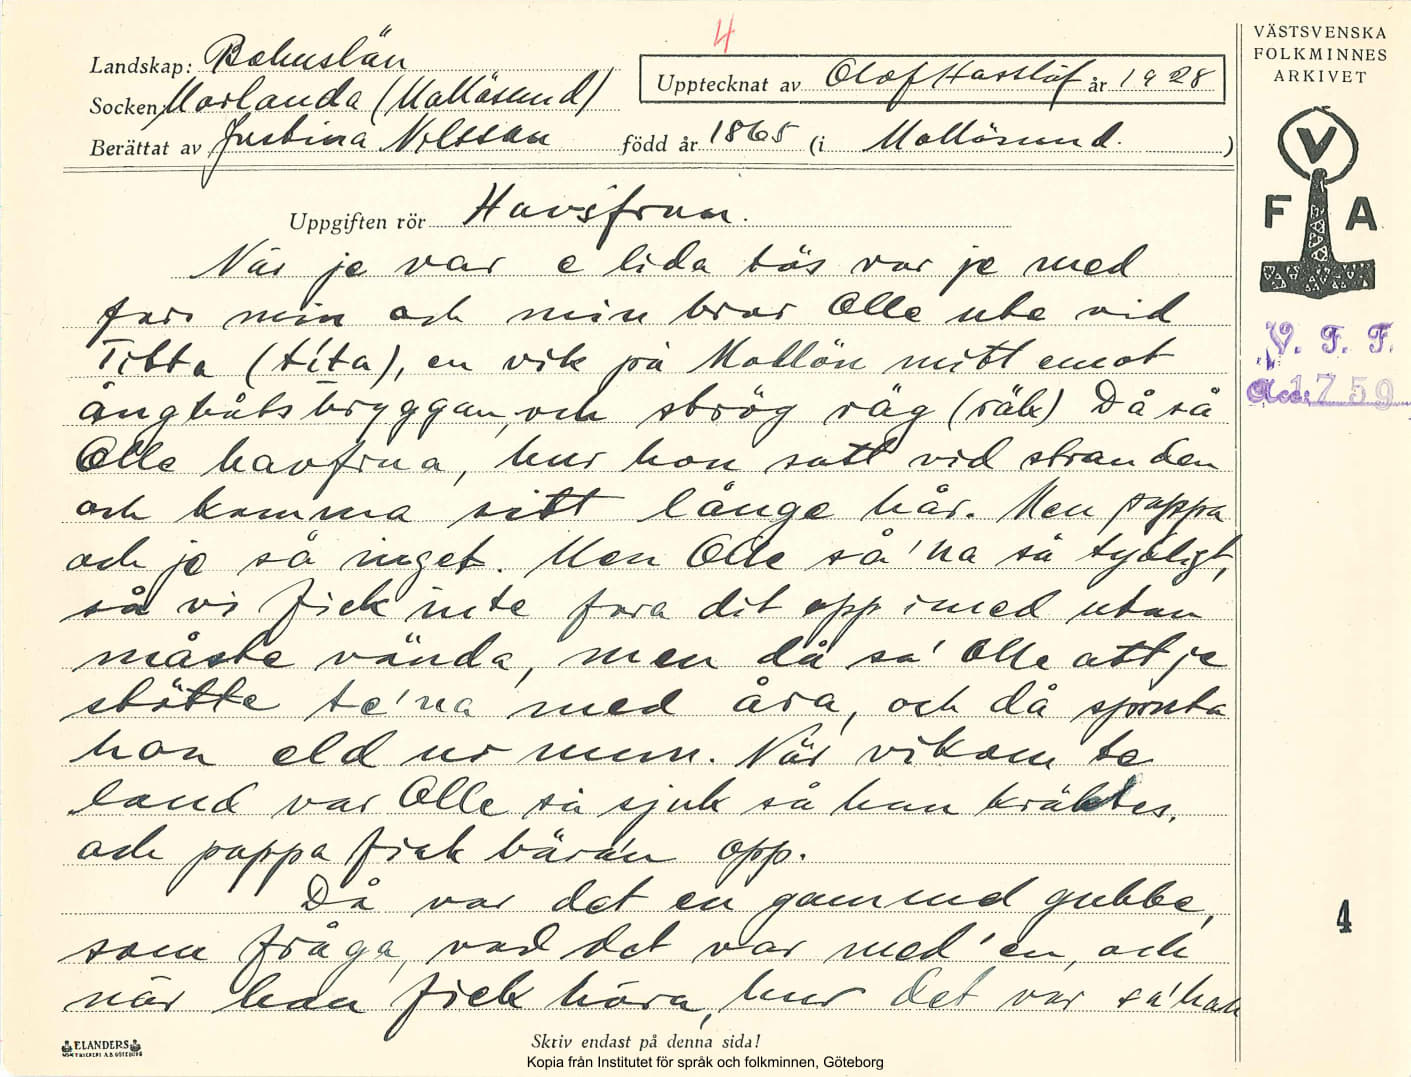 4
Landskap: Bohuslän
Socken: Morlanda (Mollösund)
Berättat av Justina Nilsson född år 1865 (i Mollösund.)
Upptecknat av Olof Hasslöf år 1928
VÄSTSVENSKA
FOLKMINNES
ARKIVET
V
F A
V. F. F.
Acc: 1759
Uppgiften rör Havsfrun.
När je var e lida tös var je med
far min och min bror Olle ute vid
Titta (títa), en vik på Mollön mitt emot
ångbåtsbryggan, och strög räg (räk) Då så
Olle havfrua, hur hon satt vid stranden
och kamma sitt långe hår. Men pappa
och je så inget. Men Olle så'na så tydligt,
så vi fick inte fara dit opp imed utan
måste vända, men då sa' Olle att je
stötte te'na med åra, och då spruta
hon eld ur mun. När vi kom te
land var Olle så sjuk så han kräktes,
och pappa fick bära'n opp.
Då var det en gammel gubbe,
som fråga, vad det var med'en, och
när han fick höra, hur det var sa'han
4
ELANDERS
Skriv endast på denna sida!
Kopia från Institutet för språk och folkminnen, Göteborg